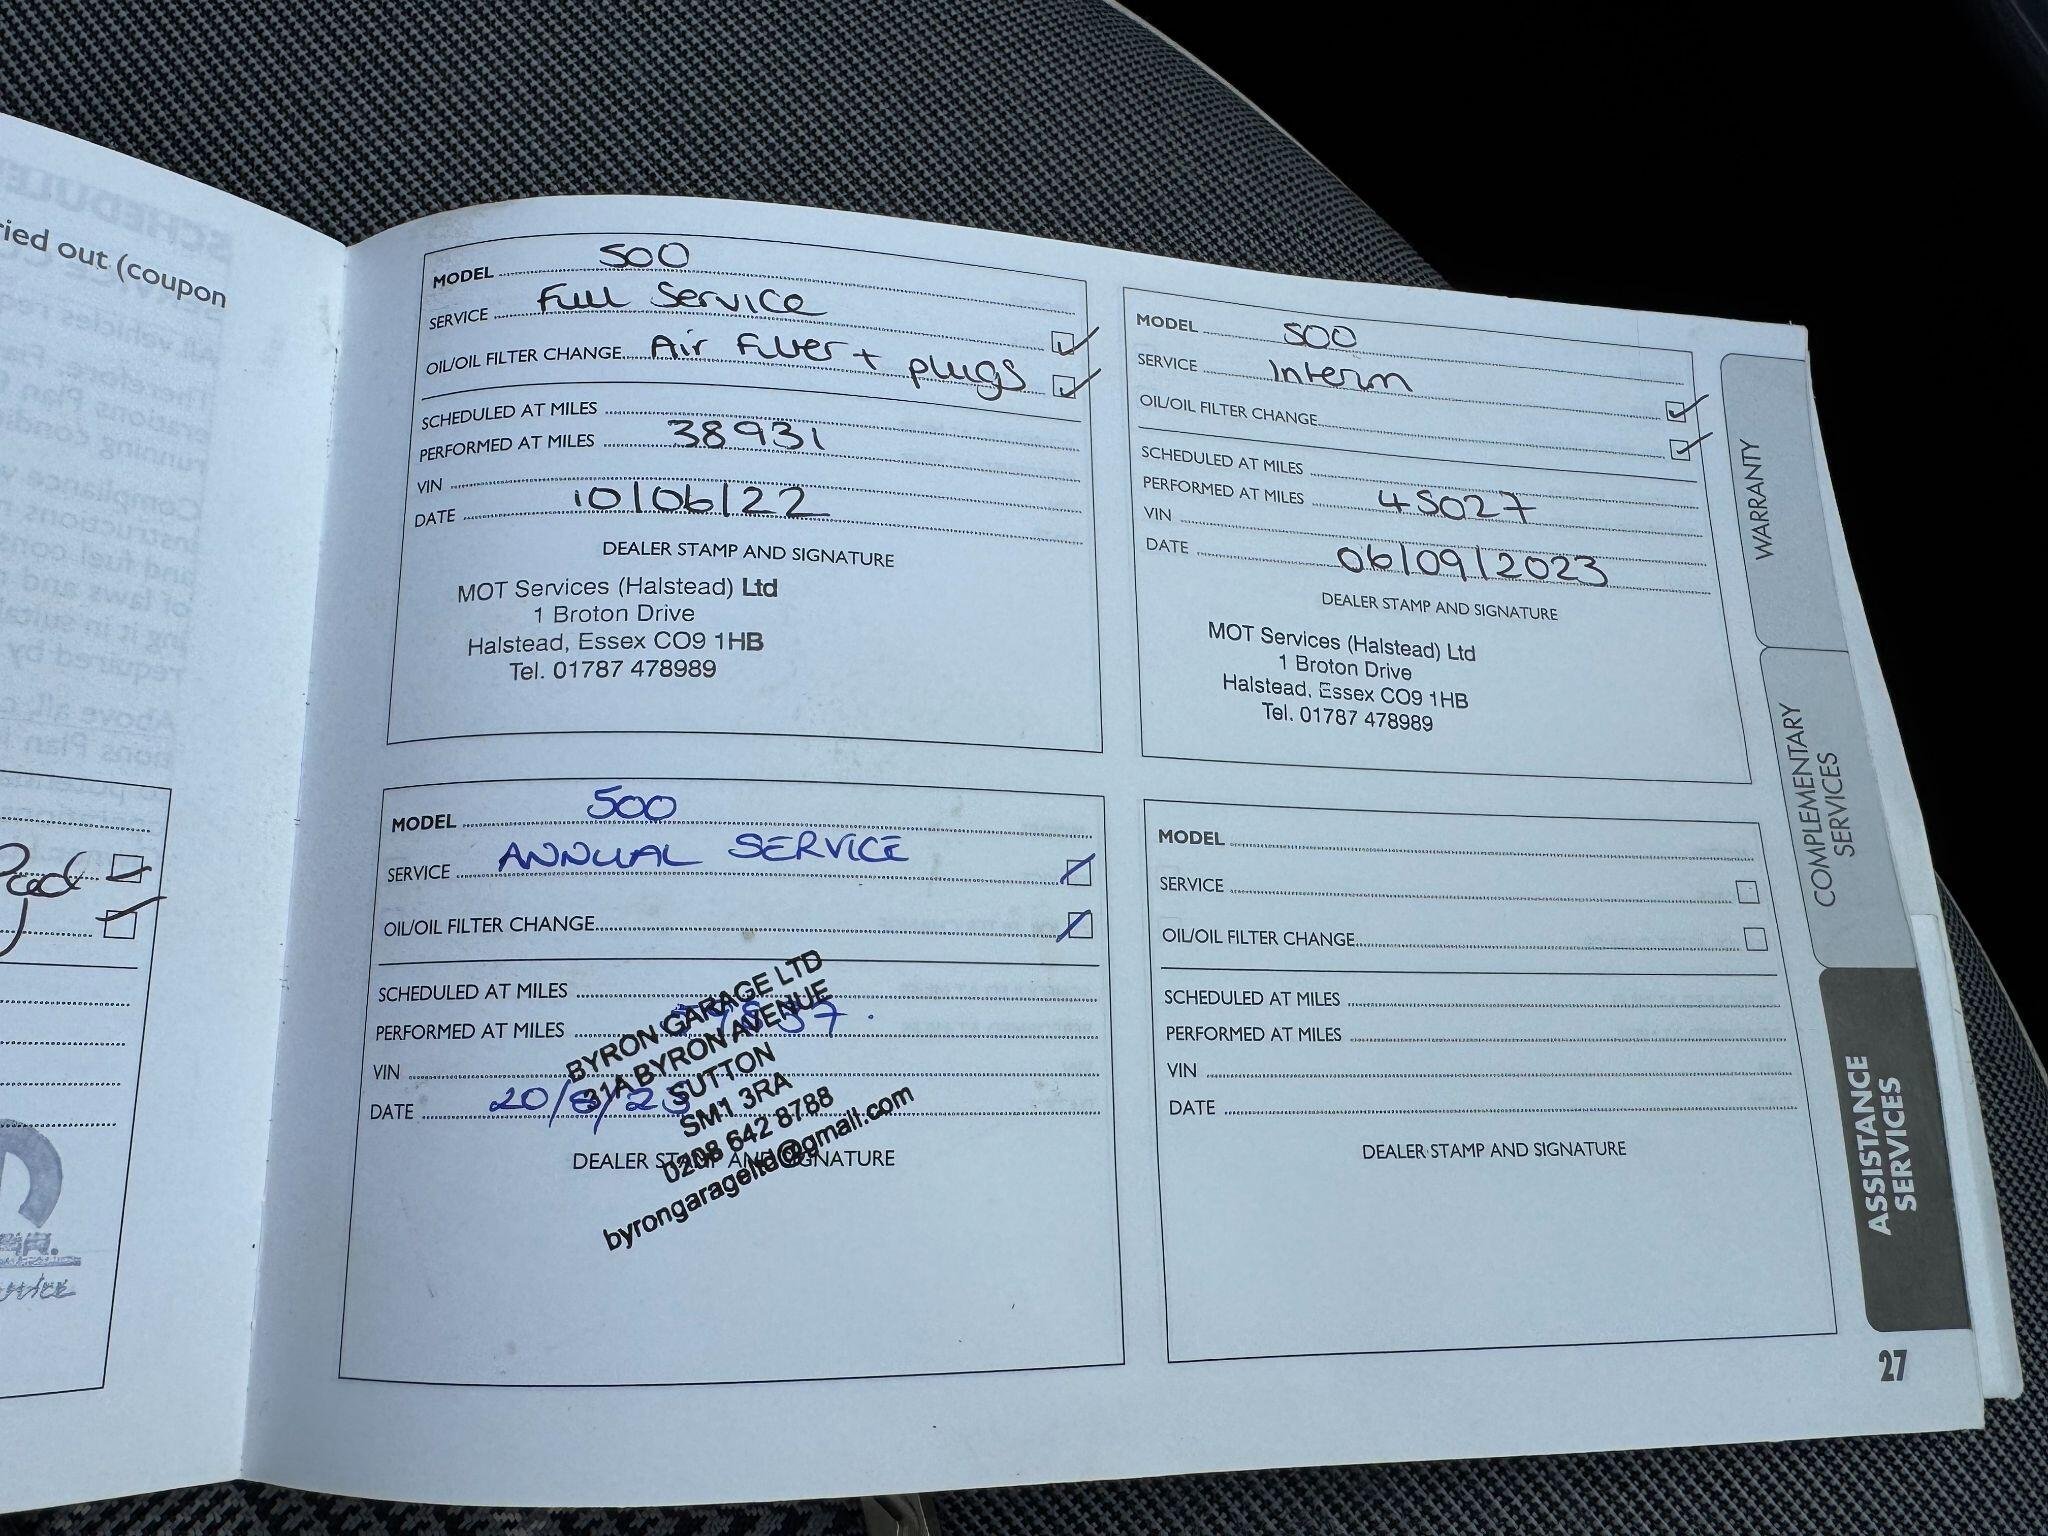 ried out (coupon
MODEL 500
SERVICE Full Service
OIL/OIL FILTER CHANGE Air Filter + plugs
SCHEDULED AT MILES
PERFORMED AT MILES 38931
VIN
DATE 10/06/22
DEALER STAMP AND SIGNATURE
MOT Services (Halstead) Ltd
1 Broton Drive
Halstead, Essex CO9 1HB
Tel. 01787 478989
MODEL 500
SERVICE Interm
OIL/OIL FILTER CHANGE
SCHEDULED AT MILES
PERFORMED AT MILES 45027
VIN
DATE 06/09/2023
DEALER STAMP AND SIGNATURE
MOT Services (Halstead) Ltd
1 Broton Drive
Halstead, Essex CO9 1HB
Tel. 01787 478989
MODEL 500
SERVICE ANNUAL SERVICE
OIL/OIL FILTER CHANGE
SCHEDULED AT MILES
PERFORMED AT MILES
VIN
DATE 20/8/25
DEALER STAMP AND SIGNATURE
BYRON GARAGE LTD
31A BYRON AVENUE
SUTTON
SM1 3RA
0208 642 8788
byrongarageltd@gmail.com
MODEL
SERVICE
OIL/OIL FILTER CHANGE
SCHEDULED AT MILES
PERFORMED AT MILES
VIN
DATE
DEALER STAMP AND SIGNATURE
WARRANTY
COMPLEMENTARY
SERVICES
ASSISTANCE
SERVICES
27